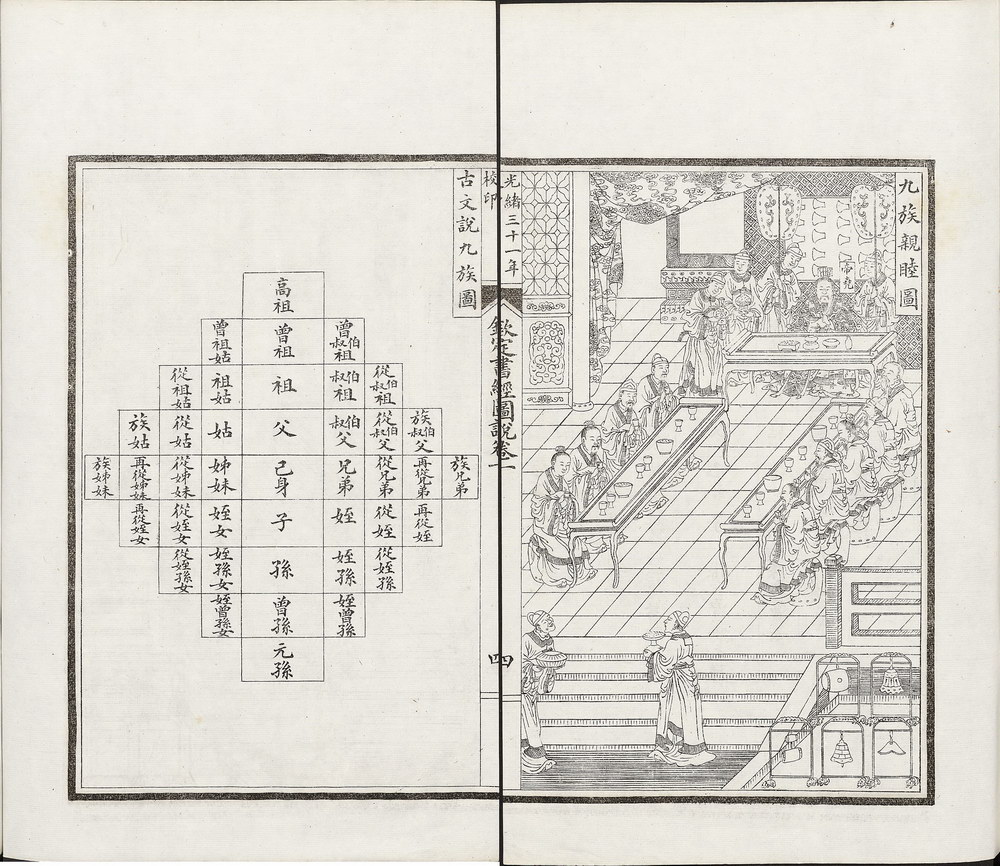 九族親睦圖
帝堯
光緒三十一年
校印
欽定書經圖說卷一
四
古文說九族圖
高祖
曾伯叔祖
曾祖
曾祖姑
從伯叔祖
伯叔祖
祖
祖姑
從祖姑
族伯叔父
從伯叔父
伯叔父
父
姑
從姑
族姑
族兄弟
再從兄弟
從兄弟
兄弟
己身
姊妹
從姊妹
再從姊妹
族姊妹
再從姪
從姪
姪
子
姪女
從姪女
再從姪女
從姪孫
姪孫
孫
姪孫女
從姪孫女
姪曾孫
曾孫
姪曾孫女
元孫